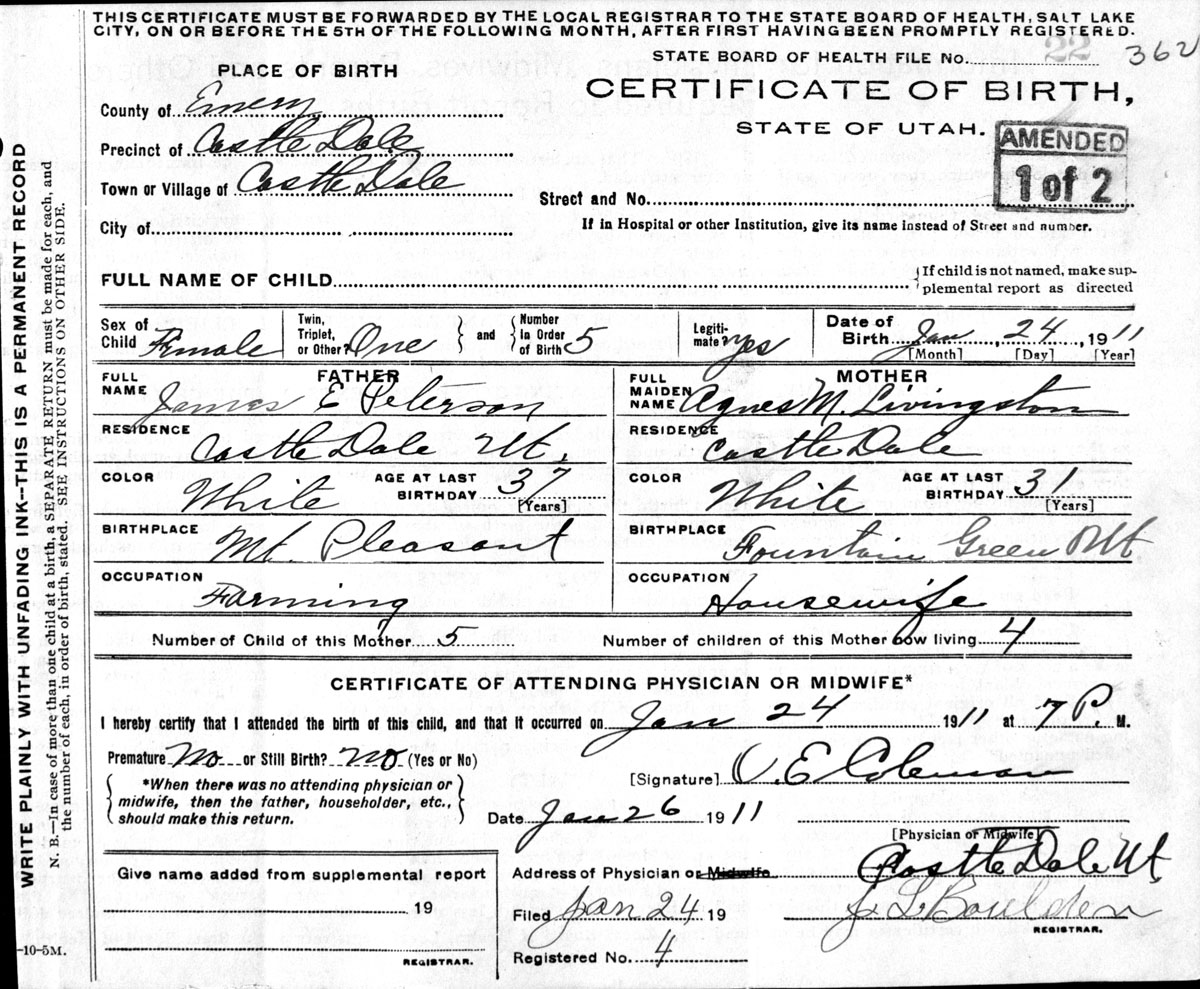 THIS CERTIFICATE MUST BE FORWARDED BY THE LOCAL REGISTRAR TO THE STATE BOARD OF HEALTH, SALT LAKE
CITY, ON OR BEFORE THE 5TH OF THE FOLLOWING MONTH, AFTER FIRST HAVING BEEN PROMPTLY REGISTERED.
STATE BOARD OF HEALTH FILE No. 22 362
PLACE OF BIRTH
CERTIFICATE OF BIRTH,
STATE OF UTAH.
AMENDED
1 of 2
County of Emery
Precinct of Castle Dale
Town or Village of Castle Dale
Street and No.
City of
If in Hospital or other Institution, give its name instead of Street and number.
FULL NAME OF CHILD
{If child is not named, make sup-
plemental report as directed
Sex of Child Female
Twin, Triplet, or Other? One } and { Number In Order of Birth 5
Legiti-mate? yes
Date of Birth Jan 24, 1911
[Month] [Day] [Year]
FATHER
FULL NAME James E Peterson
RESIDENCE Castle Dale Ut.
COLOR White AGE AT LAST BIRTHDAY 37 [Years]
BIRTHPLACE Mt. Pleasant
OCCUPATION Farming
MOTHER
FULL MAIDEN NAME Agnes M. Livingston
RESIDENCE Castle Dale
COLOR White AGE AT LAST BIRTHDAY 31 [Years]
BIRTHPLACE Fountain Green Ut.
OCCUPATION Housewife
Number of Child of this Mother 5 Number of children of this Mother now living 4
CERTIFICATE OF ATTENDING PHYSICIAN OR MIDWIFE*
I hereby certify that I attended the birth of this child, and that it occurred on Jan 24 1911 at 7 P. M.
Premature No or Still Birth? No (Yes or No)
{ *When there was no attending physician or
midwife, then the father, householder, etc.,
should make this return. }
[Signature] E Coleman
Date Jan 26 1911
[Physician or Midwife]
Address of Physician or Midwife Castle Dale Ut
Filed Jan 24 19 J L Boulden
REGISTRAR.
Registered No. 4
Give name added from supplemental report
19
REGISTRAR.
-10-5M.
WRITE PLAINLY WITH UNFADING INK--THIS IS A PERMANENT RECORD
N. B.—In case of more than one child at a birth, a SEPARATE RETURN must be made for each, and
the number of each, in order of birth, stated. SEE INSTRUCTIONS ON OTHER SIDE.